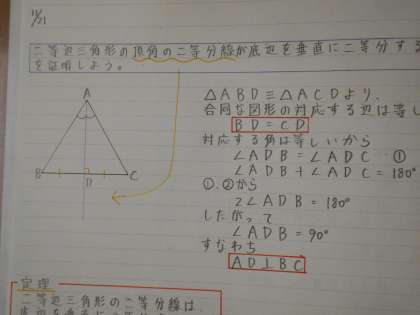 11/21
二等辺三角形の頂角の二等分線が底辺を垂直に二等分する
を証明しよう。
A
B
D
C
△ABD≡△ACDより、
合同な図形の対応する辺は等し
BD=CD
対応する角は等しいから
∠ADB=∠ADC ①
∠ADB+∠ADC=180°
①.②から
2∠ADB=180°
したがって
∠ADB=90°
すなわち
AD⊥BC
定理
二等辺三角形の二等分線は、
底辺を垂直に